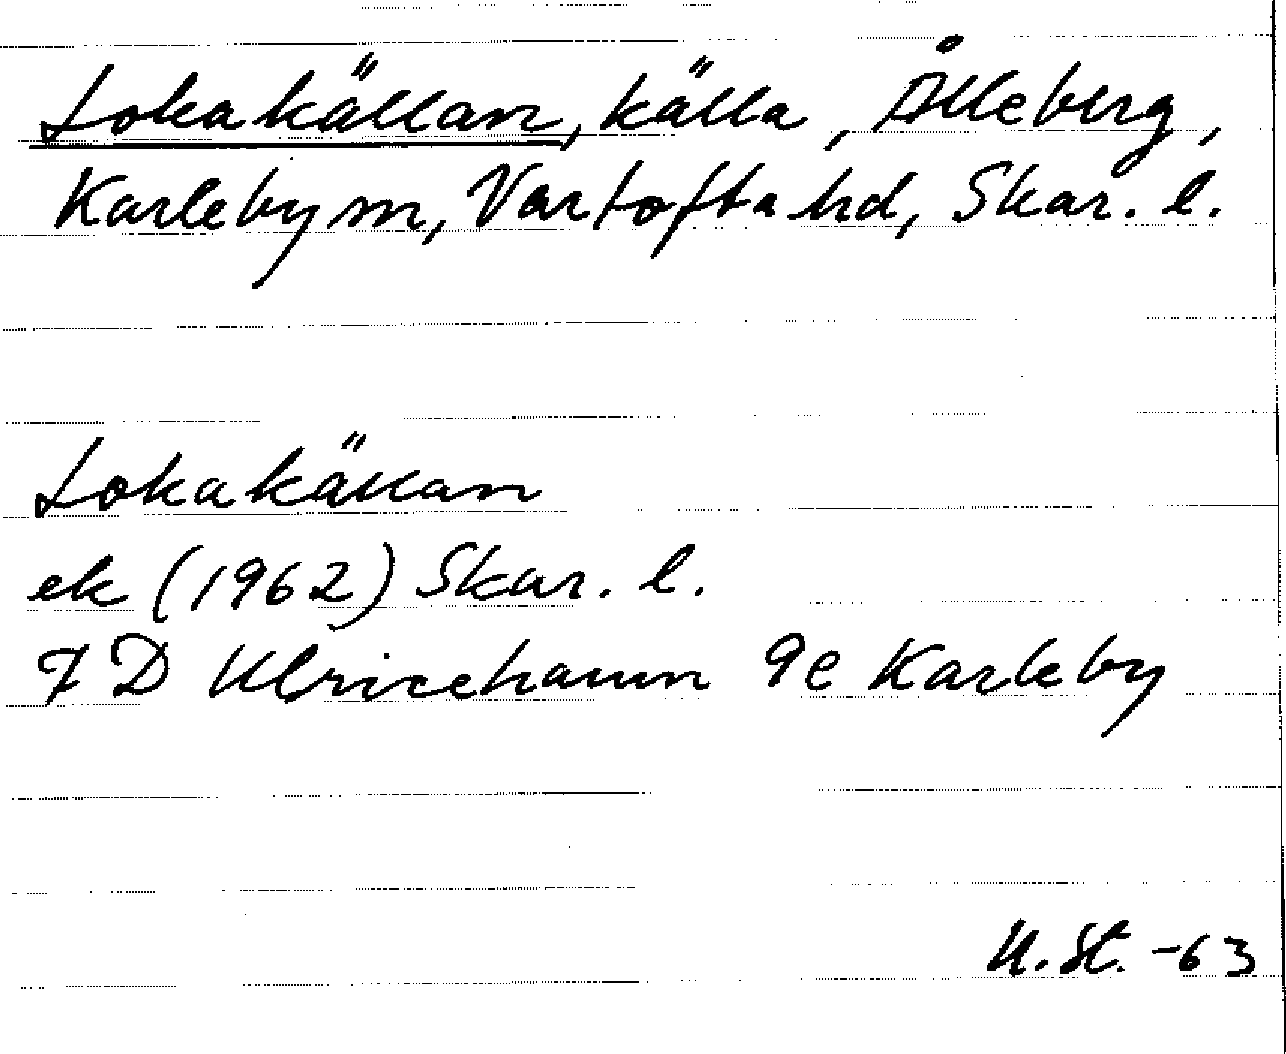 Lokakällan, källa, Ålleberg,
Karleby sn, Vartofta hd, Skar. l.
Lokakällan
ek (1962) Skar. l.
7 D Ulricehamn 9e Karleby
U. St. -63